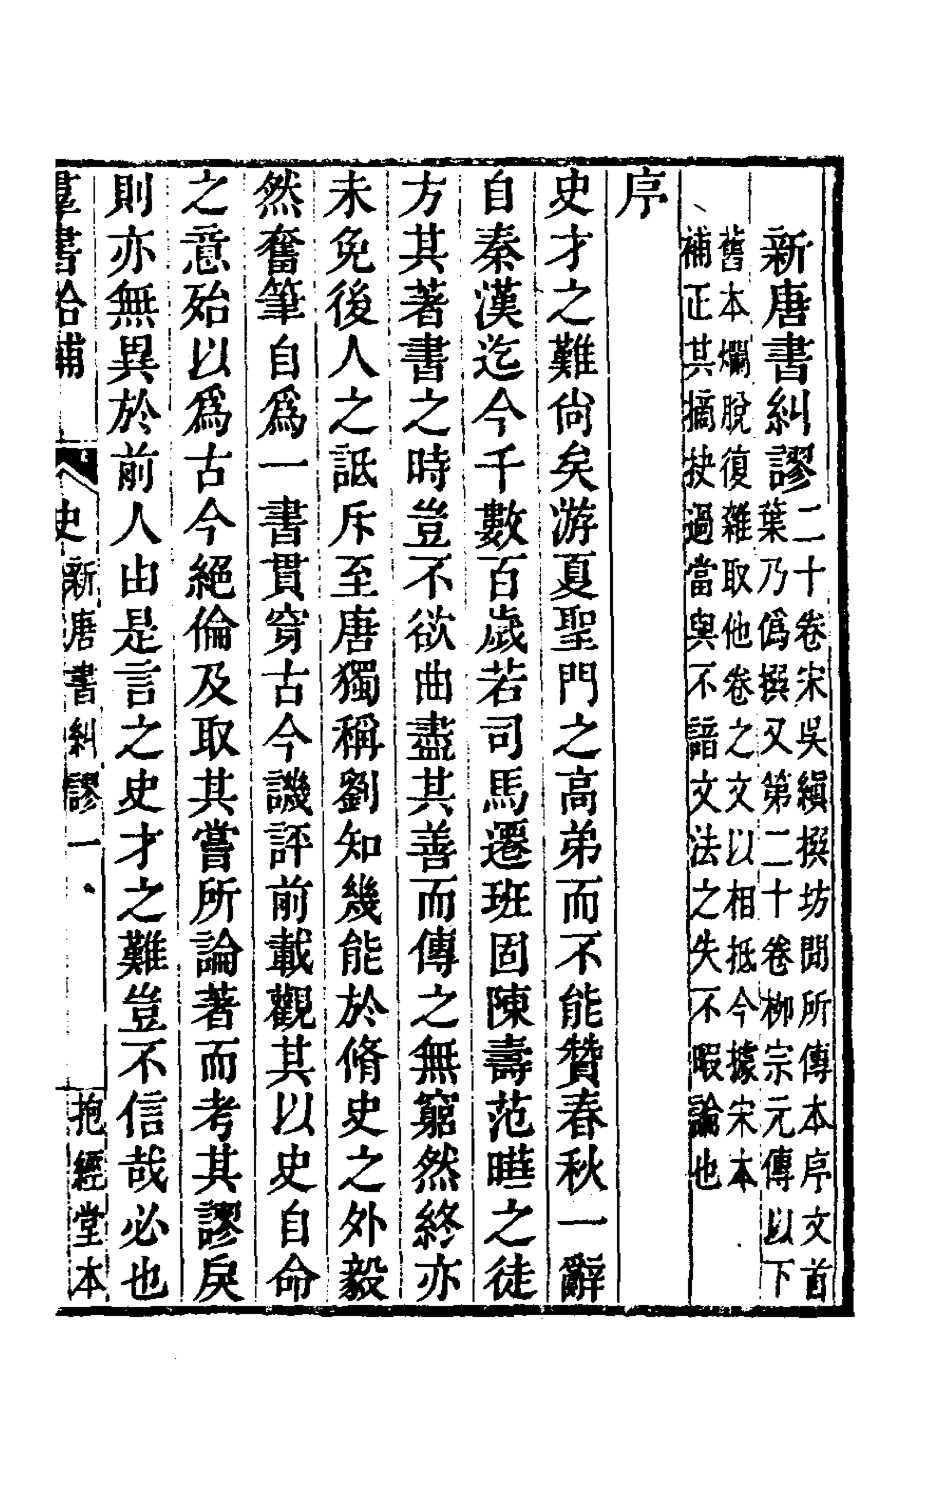 新唐書糾謬二十卷宋吳縝撰坊閒所傳本序文首
葉乃僞撰又第二十卷柳宗元傳以下
舊本爛脫復雜取他卷之文以相抵今據宋本
補正其摘抉過當與不諳文法之失不暇論也
序
史才之難尙矣游夏聖門之高弟而不能贊春秋一辭
自秦漢迄今千數百歲若司馬遷班固陳壽范曄之徒
方其著書之時豈不欲曲盡其善而傳之無窮然終亦
未免後人之詆斥至唐獨稱劉知幾能於脩史之外毅
然奮筆自爲一書貫穿古今譏評前載觀其以史自命
之意殆以爲古今絕倫及取其嘗所論著而考其謬戾
則亦無異於前人由是言之史才之難豈不信哉必也
羣書拾補 史 新唐書糾謬 一 抱經堂本